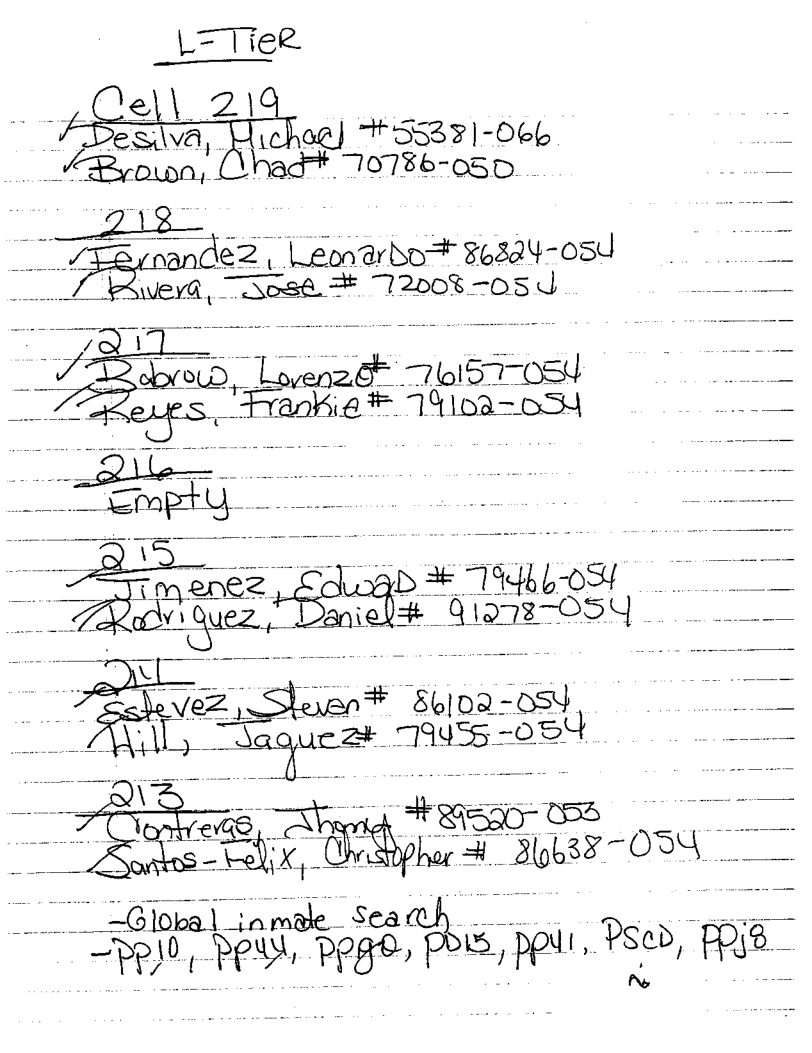 L-Tier
Cell 219
Desilva, Michael #55381-066
Brown, Chad# 70786-050
218
Fernandez, Leonardo# 86824-054
Rivera, Jose # 72008-054
217
Babrow, Lorenzo# 76157-054
Reyes, Frankie# 79102-054
216
Empty
215
Jimenez, Edwad # 79466-054
Rodriguez, Daniel# 91278-054
214
Estevez, Steven# 86102-054
Hill, Jaquez# 79455-054
213
Contreras, #89520-053
Santos-Felix, Christopher # 86638-054
-Global inmate search
-pp10, pp44, ppg0, pp41, PSCD, ppj8